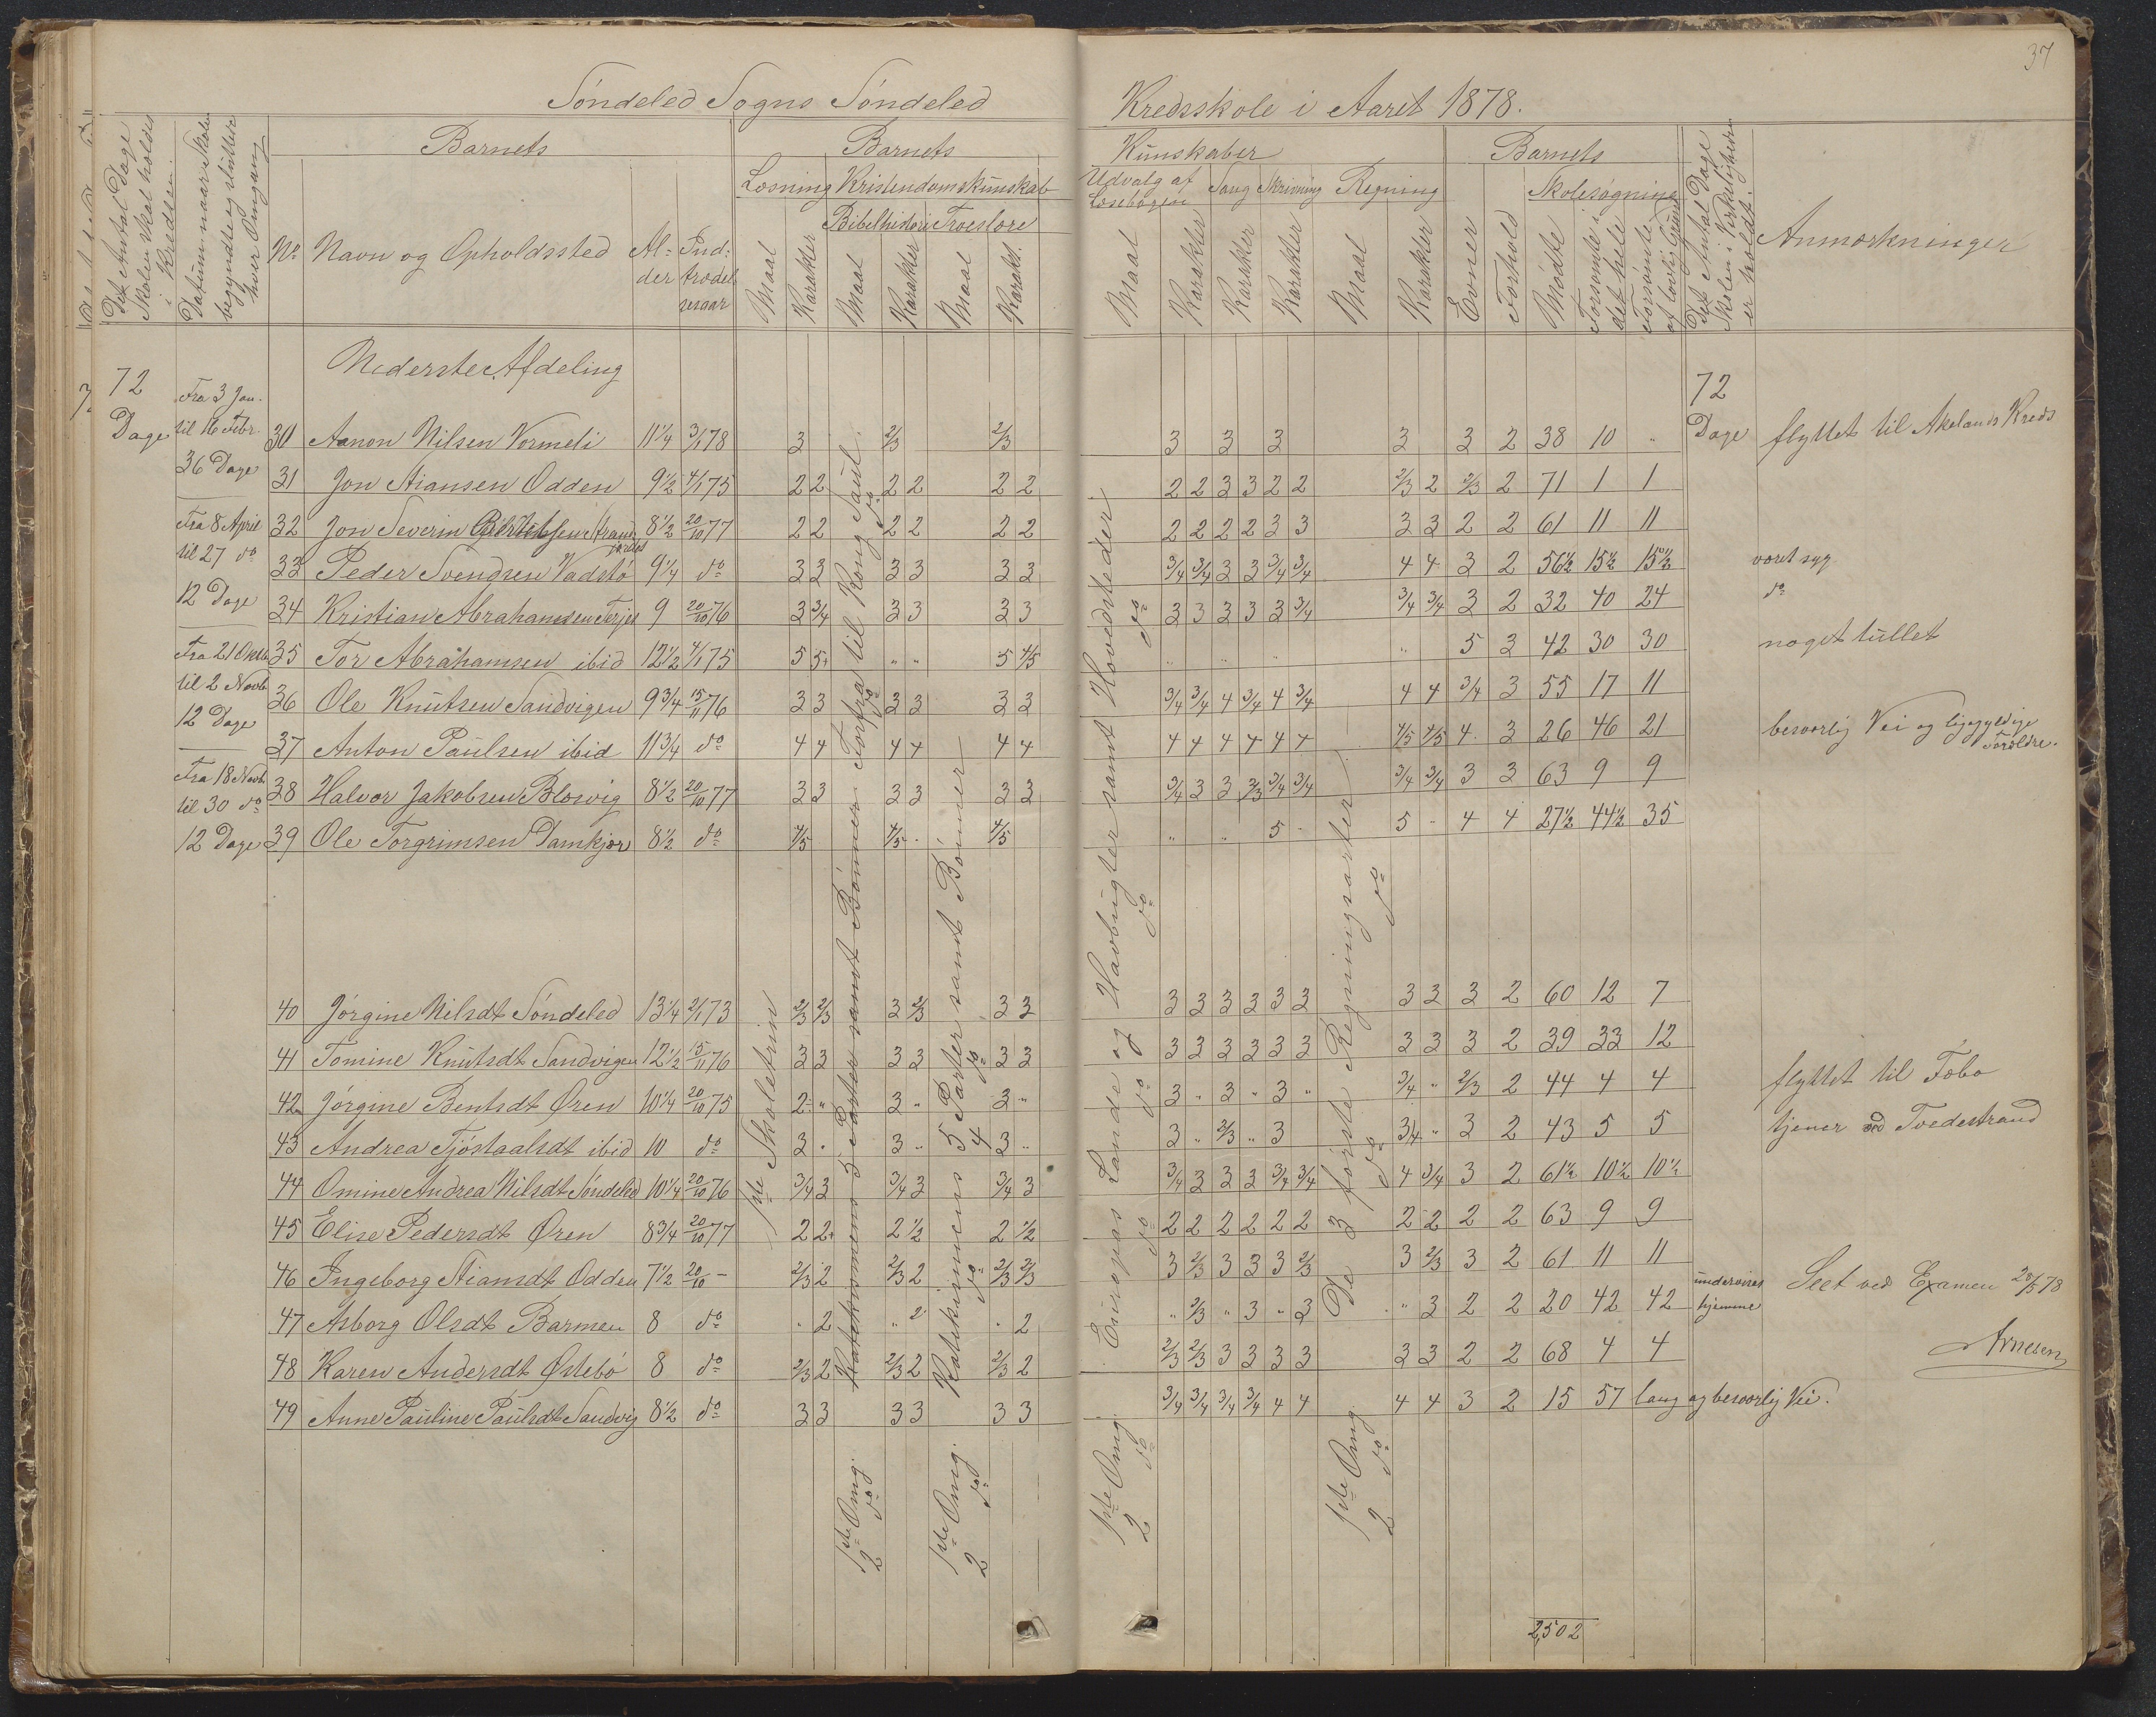 37
Söndeled Sogns Söndeled Kredsskole i Aaret 1878.
Det Antal Dage Skolen skal holdes i Kredsen.
Datum naar Skolen begyndte og sluttede hver Omgang
Barnets
No
Navn og Opholdssted
Alder
Indtrædelsesaar
Barnets
Læsning
Kristendomskundskab
Bibelhistorie Troeslære
Maal
Karakter
Maal
Karakter
Maal
Karakt.
Kunskaber
Udvalg af Læsebogen
Sang
Skrivning
Regning
Maal
Karakter
Karakter
Karakter
Maal
Karakter
Barnets
Evner
Forhold
Skolesøgning
Mødte
Forsømte i det hele
Forsømte af lovlig Grund
Det Antal Dage Skolen i Virkeligheden er holdt.
Anmærkninger
Nederste Afdeling
72 Dage
Fra 3 Jan.
til 16 Febr.
36 Dage
Fra 8 April
til 27 do
12 Dage
Fra 21 Oktb
til 2 Novb.
12 Dage
Fra 18 Novb.
til 30 do
12 Dage
72 Dage
30 Aanon Nilsen Vormeli 11 1/4 3/1 78 3 2/3 2/3 3 3 3 3 3 2 38 10 " flyttet til Akelands Kreds
31 Jon Stiansen Odden 9 1/2 4/1 75 2 2 2 2 2 2 2 2 3 3 2 2 2/3 2 2/3 2 71 1 1
32 Jon Severin 8 1/2 20/10 77 2 2 2 2 2 2 2 2 2 2 3 3 3 3 2 2 61 11 11
33 Peder Svendsen Vadstö 9 1/4 do 3 3 3 3 3 3 3/4 3/4 3 3 3/4 3/4 4 4 3 2 56 1/2 15 1/2 15 1/2 været syg
34 Kristian Abrahamsen Terjes 9 20/10 76 3 3/4 3 3 3 3 3 3 3 3 3 3/4 3/4 3/4 3 2 32 40 24 do
35 Tor Abrahamsen ibid 12 1/2 4/1 75 5 5+ " " 5 4/5 " " " " 5 3 42 30 30 noget tullet
36 Ole Knutsen Sandvigen 9 3/4 15/11 76 3 3 3 3 3 3 3/4 3/4 4 3/4 4 3/4 4 4 3/4 3 55 17 11
37 Anton Paulsen ibid 11 3/4 do 4 4 4 4 4 4 4 4 4 4 4 4 4/5 4/5 4 3 26 46 21 besværlig Vei og ligegyldige Forældre.
38 Halvor Jakobsen Blesvig 8 1/2 20/10 77 3 3 3 3 3 3 3/4 3 3 2/3 3/4 3/4 3/4 3/4 3 3 63 9 9
39 Ole Torgrimsen Damkjær 8 1/2 do 4/5 4/5 4/5 " " 5 5 " 4 4 27 1/2 44 1/2 35
40 Jörgine Nilsdt Söndeled 13 1/4 2/1 73 2/3 2/3 3 2/3 3 3 3 3 3 3 3 3 3 3 3 2 60 12 7
41 Tomine Knutsdt Sandvigen 12 1/2 15/11 76 3 3 3 3 3 3 3 3 3 3 3 3 3 3 3 2 39 33 12
42 Jörgine Bentsdt Øren 10 1/4 20/10 75 2 " 3 " 3 " 3 " 3 " 3 " 3/4 " 2/3 2 44 4 4 flyttet til Febo
43 Andrea Tjöstaalsdt ibid 10 do 3 " 3 " 3 " 3 " 2/3 " 3 3/4 " 3 2 43 5 5 tjener ved Tvedestrand
44 Omine Andrea Nilsdt Söndeled 10 1/4 20/10 76 3/4 3 3/4 3 3/4 3 3/4 3 3 3 3/4 3/4 4 3/4 3 2 61 1/2 10 1/2 10 1/2
45 Elise Pedersdt Øren 8 3/4 20/10 77 2 2+ 2 1/2 2 1/2 2 2 2 2 2 2 2 2 2 2 63 9 9
46 Ingeborg Stiansdt Odden 7 1/2 20/10 - 2/3 2 2/3 2 2/3 2/3 3 2/3 3 3 3 2/3 3 2/3 3 2 61 11 11
47 Asborg Olsdt Barmen 8 do " 2 " 2 " 2 " 2/3 " 3 " 3 " 3 2 2 20 42 42 undervises hjemme
48 Karen Andersdt Østebö 8 do 2/3 2 2/3 2 2/3 2 2/3 2/3 3 3 3 3 3 3 2 2 68 4 4
49 Anne Pauline Paulsdt Sandvig 8 1/2 do 3 3 3 3 3 3 3/4 3/4 3/4 3/4 4 4 4 4 3 2 15 57 lang og besværlig Vei.
Seet ved Examen 20/5 78
Arnesen
1ste Skoletrin
Forfra til Kong Saul.
do
do
1ste Omg.
2 do
Katekismens 5 Parter samt Bönner
do
4
do
1ste Omg.
2 do
Europas Lande og Havbugter samt Hovedsteder
do
do
do
do
1ste Omg.
2 do
De 3 förste Regningsarter
do
do
1ste Omg.
2 do
2,502